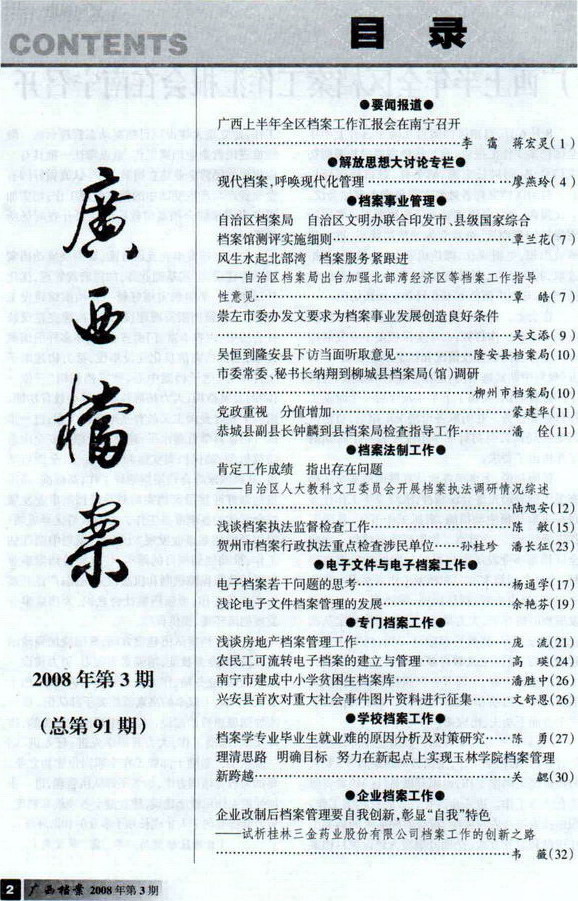 CONTENTS
目 录
廣西檔案
2008 年第 3 期
(总第 91 期)
●要闻报道●
广西上半年全区档案工作汇报会在南宁召开
李 蔼 蒋宏灵(1)
●解放思想大讨论专栏●
现代档案,呼唤现代化管理……廖燕玲(4)
●档案事业管理●
自治区档案局 自治区文明办联合印发市、县级国家综合
档案馆测评实施细则……章兰花(7)
风生水起北部湾 档案服务紧跟进
——自治区档案局出台加强北部湾经济区等档案工作指导
性意见……章 皓(7)
崇左市委办发文要求为档案事业发展创造良好条件
……吴文添(9)
吴恒到隆安县下访当面听取意见……隆安县档案局(10)
市委常委、秘书长纳翔到柳城县档案局(馆)调研
……柳州市档案局(10)
党政重视 分值增加……蒙建华(11)
恭城县副县长钟麟到县档案局检查指导工作……潘 佺(11)
●档案法制工作●
肯定工作成绩 指出存在问题
——自治区人大教科文卫委员会开展档案执法调研情况综述
……陆旭安(12)
浅谈档案执法监督检查工作……陈 敏(15)
贺州市档案行政执法重点检查涉民单位……孙桂珍 潘长征(23)
●电子文件与电子档案工作●
电子档案若干问题的思考……杨通学(17)
浅论电子文件档案管理的发展……余艳芬(19)
●专门档案工作●
浅谈房地产档案管理工作……庞 流(21)
农民工可流转电子档案的建立与管理……高 瑛(24)
南宁市建成中小学贫困生档案库……潘胜中(26)
兴安县首次对重大社会事件图片资料进行征集……文舒恩(26)
●学校档案工作●
档案学专业毕业生就业难的原因分析及对策研究……陈 勇(27)
理清思路 明确目标 努力在新起点上实现玉林学院档案管理
新跨越……关 勰(30)
●企业档案工作●
企业改制后档案管理要自我创新,彰显“自我”特色
——试析桂林三金药业股份有限公司档案工作的创新之路
……韦 薇(32)
2 广西档案 2008 年第 3 期